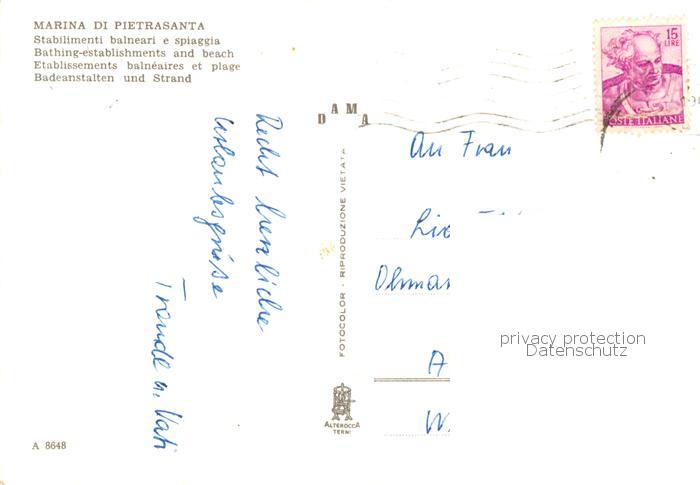 MARINA DI PIETRASANTA
Stabilimenti balneari e spiaggia
Bathing-establishments and beach
Etablissements balnéaires et plage
Badeanstalten und Strand
Recht herzliche
Urlaubsgrüsse
Traudl u. Vati
DAMA
FOTOCOLOR - RIPRODUZIONE VIETATA
ALTEROCCA
TERNI
A 8648
15
LIRE
POSTE ITALIANE
An Frau
A
W.
privacy protection
Datenschutz